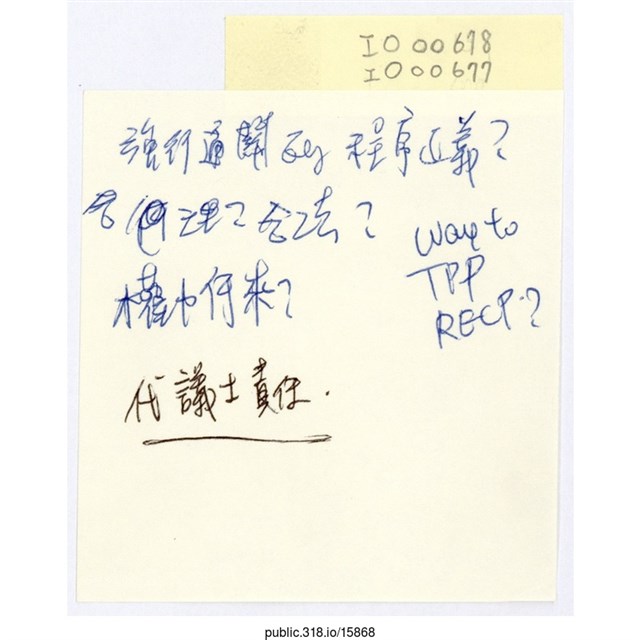 IO 00678
IO 00677
強行通關的程序正義?
合理?合法?
權力何來?
Way to
TPP
RECP?
代議士責任.
public.318.io/15868